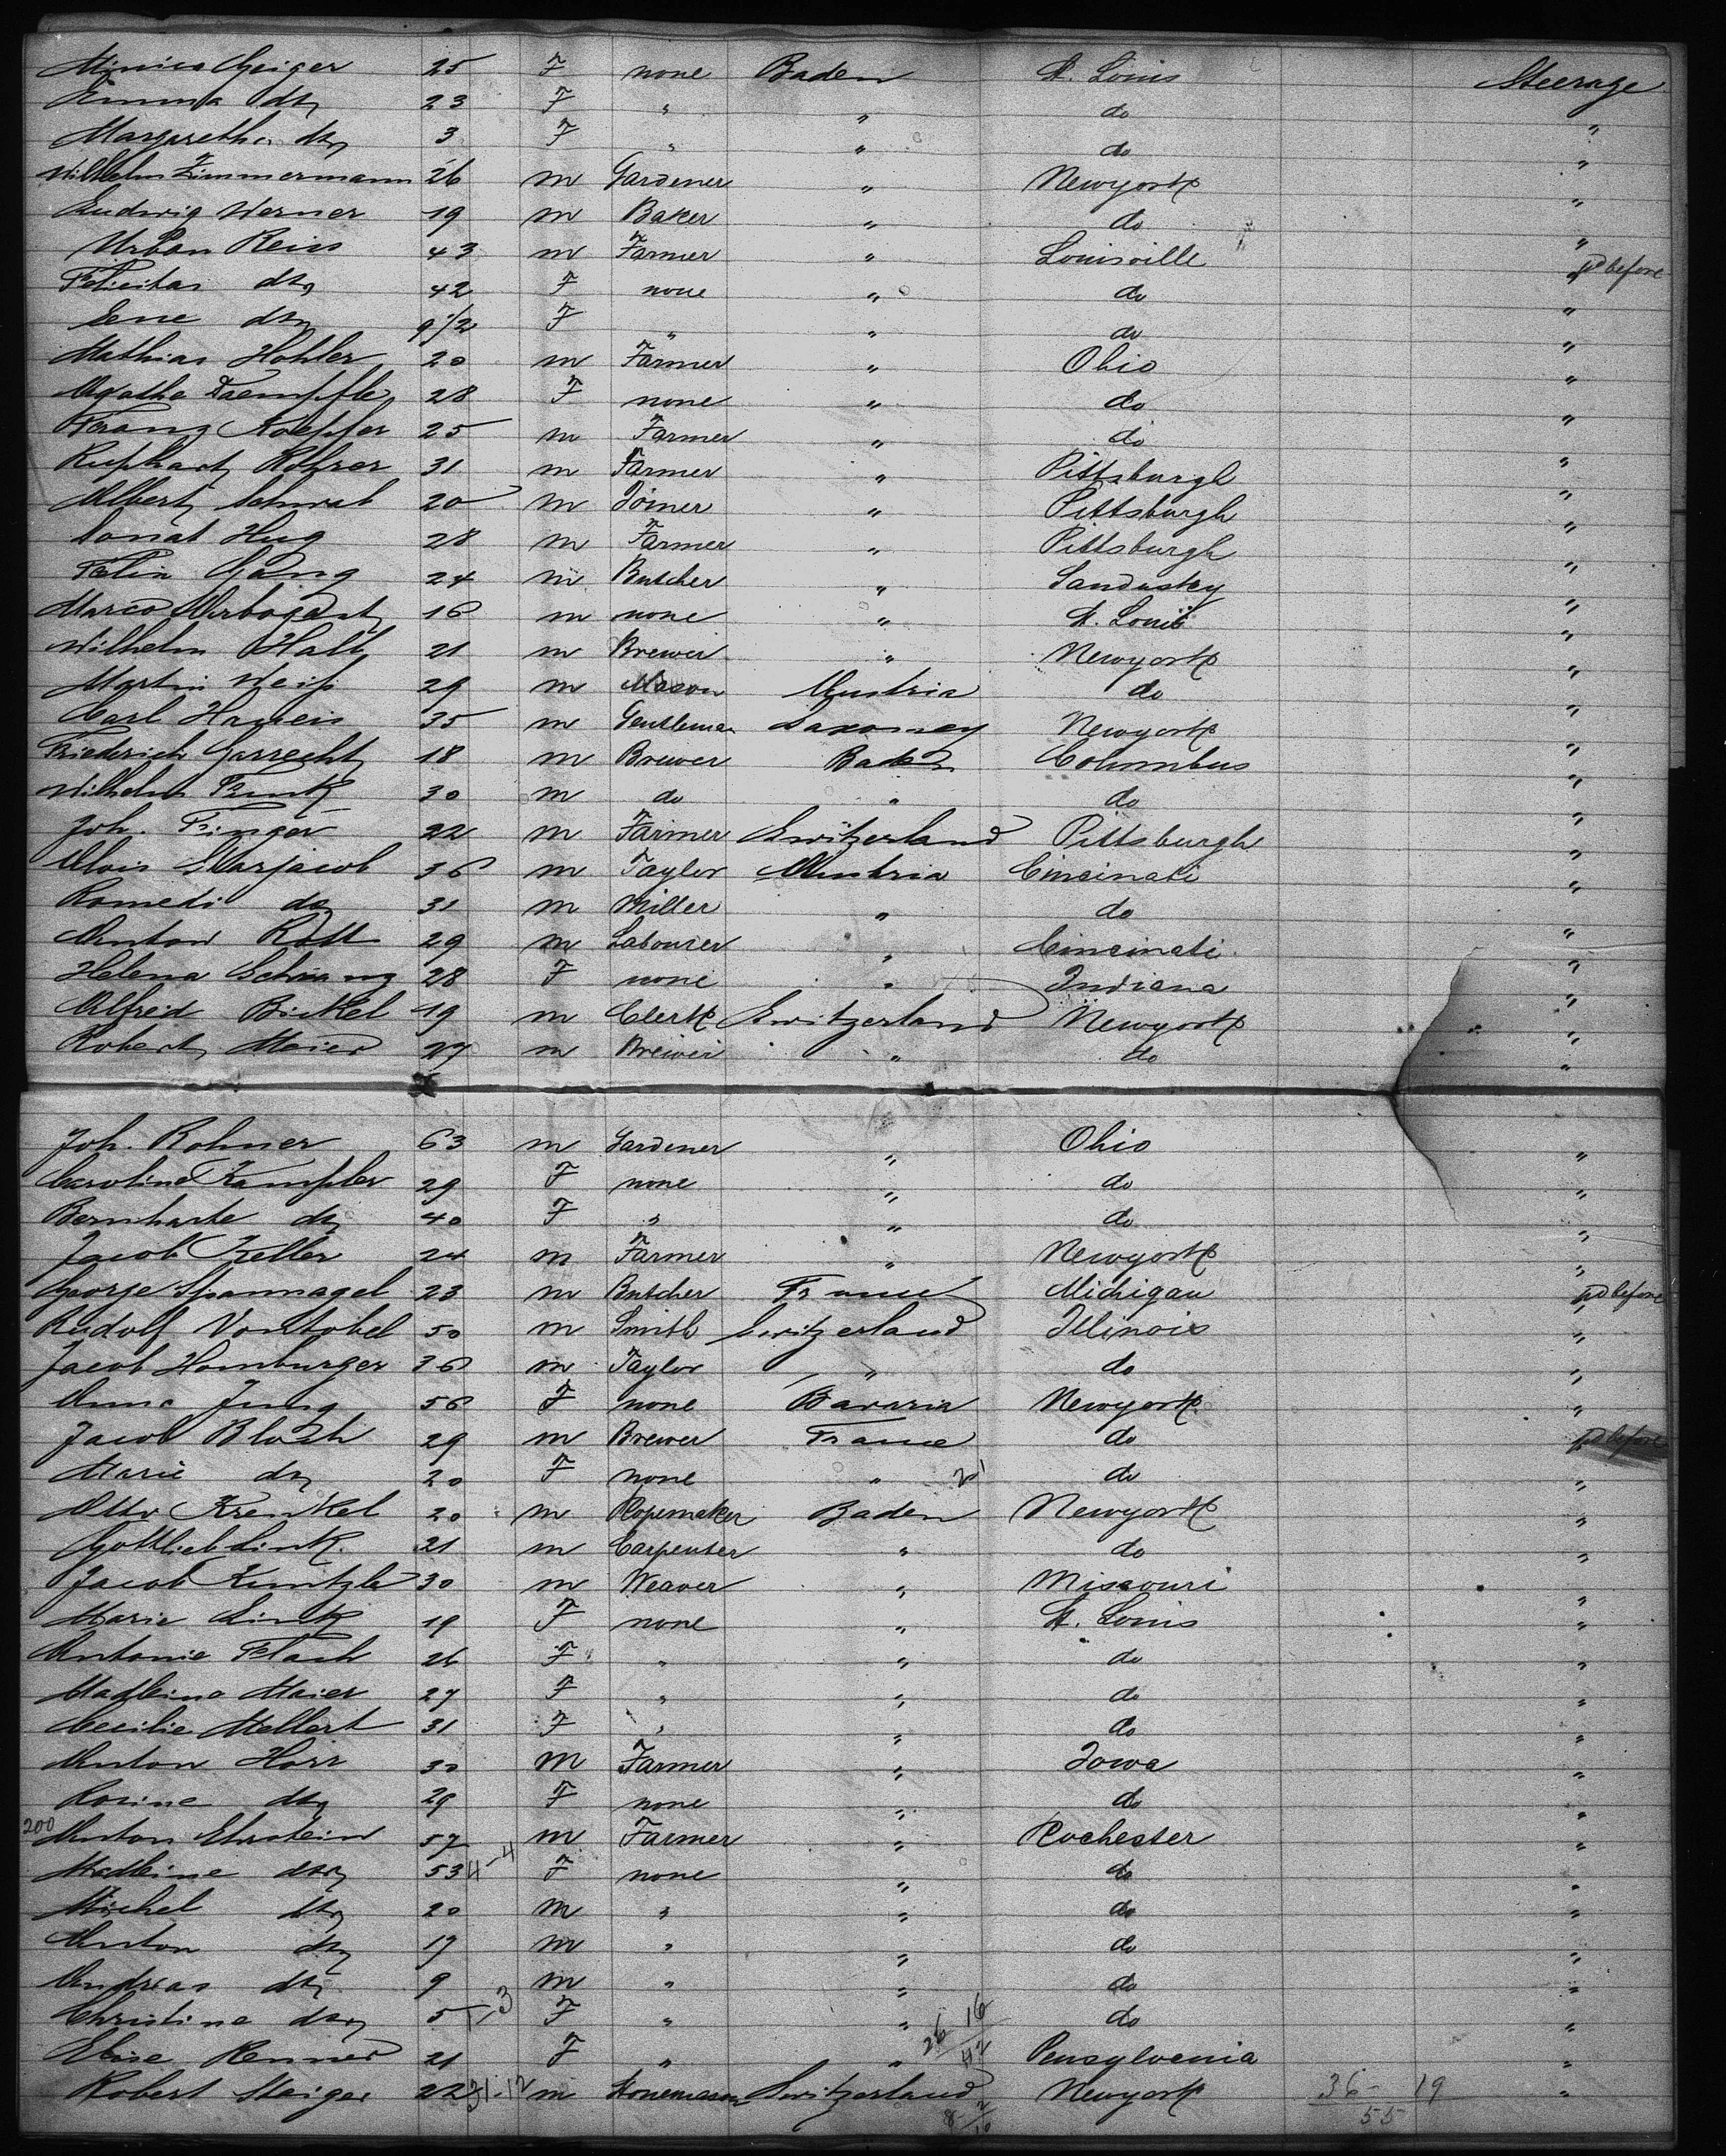 Geiger 25 F none Baden St. Louis Steerage
Emma dto 23 F " " do "
Margaretha dto 3 F " " do "
Wilhelm Zimmermann 26 m Gardener " Newyork "
Ludwig Werner 19 m Baker " do "
Urban Reiss 43 m Farmer " Louisville " pd before
Felicitas dto 42 F none " do "
Lene dto 9 1/2 F " " do "
Mathias Hohler 20 m Farmer " Ohio "
Agatha Daempfle 28 F none " do "
Franz Koepfer 25 m Farmer " do "
Rohrer 31 m Farmer " Pittsburgh "
Albert Schwab 20 m Joiner " Pittsburgh "
Donat Hug 28 m Farmer " Pittsburgh "
Felix 24 m Butcher " Sandusky "
Marco Arbogast 16 m none " St. Louis "
Wilhelm Halb 21 m Brewer " Newyork "
Martin Weiß 29 m Mason Austria do "
Carl 35 m Gentleman Saxoney Newyork "
Friederich Garrecht 18 m Brewer Baden Columbus "
Wilhelm Funk 30 m do " do "
Joh. Finger 22 m Farmer Switzerland Pittsburgh "
Alois Marjacob 36 m Taylor Austria Cincinati "
Romedi do 31 m Miller " do "
Anton 29 m Labourer " Cincinati "
Helena 28 F none " Indiana "
Alfred Bickel 19 m Clerk Switzerland Newyork "
Robert Meier 27 m Brewer " do "
Joh. Rohner 63 m Gardener " Ohio "
Caroline Kampfler 29 F none " do "
Bernharte do 40 F " " do "
Jacob Keller 24 m Farmer " Newyork "
George Spannagel 23 m Butcher France Michigan " pd before
Rudolf Vontobel 50 m Smith Switzerland Illinois "
Jacob Homburger 36 m Taylor " do "
Anna Jung 56 F none Bavaria Newyork "
Jacob Bloch 29 m Brewer France do " pd before
Marie do 20 F none " 21 do "
Otto Krenkel 20 m Ropemaker Baden Newyork "
Gottlieb Link 21 m Carpenter " do "
Jacob Kuntzle 30 m Weaver " Missouri "
Marie Link 19 F none " St. Louis "
Antonie Flach 26 F " " do "
Madleine Maier 27 F " " do "
Cecilie Mellert 31 F " " do "
Anton Horr 30 m Farmer " Iowa "
Rosine dto 29 F none " do "
200 Anton Ehrstein 57 m Farmer " Rochester "
Madleine dto 53 4-4 F none " do "
Michel dto 20 m " " do "
Anton do 17 m " " do "
Andreas dto 9 m " " do "
Christine dto 5 F " " do "
Elise Renner 21 F " " 26 16 42 Pensylvania "
Robert Steiger 22 31-12 m Stonemason Switzerland Newyork 36-19 55 "